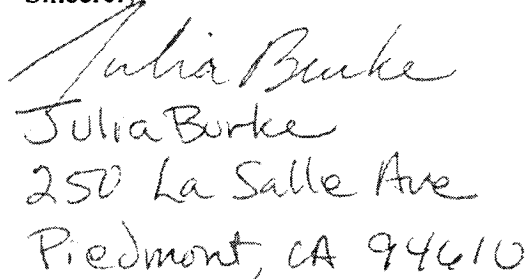 Julia Burke
Julia Burke
250 La Salle Ave
Piedmont, CA 94610